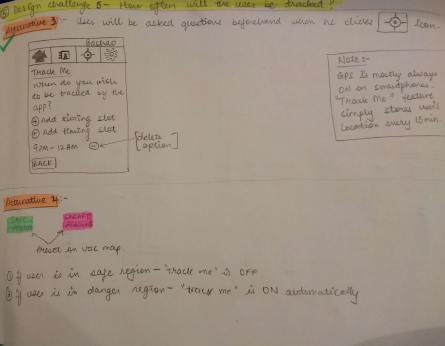 ⑤ Design challenge 5 - How often will the user be tracked?
Alternative 3:- User will be asked questions beforehand when he clicks icon.
Track Me
When do you wish
to be tracked by the
app?
⊕ Add timing slot
⊕ Add timing slot
9PM - 12AM ⊖
[delete option]
BACK
Note:-
GPS is mostly always
ON on smartphones.
"Track Me" feature
simply stores user's
location every 15 min.
Alternative 4:-
SAFE
Preset on the map
① if user is in safe region - 'track me' is OFF
② if user is in danger region - "track me" is ON automatically